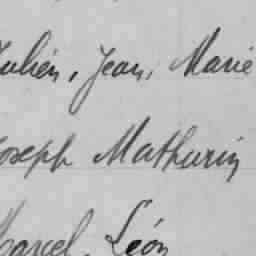 Julien, Jean, Marie
Joseph Mathurin
Marcel, Léon